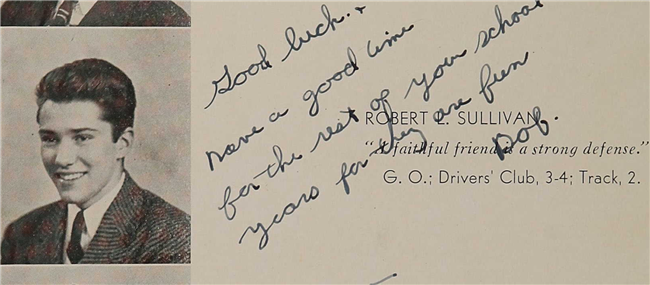 Good luck. &
have a good time
for the rest of your school
years for they are fun
Bob.
ROBERT E. SULLIVAN
"A faithful friend is a strong defense."
G. O.; Drivers' Club, 3-4; Track, 2.